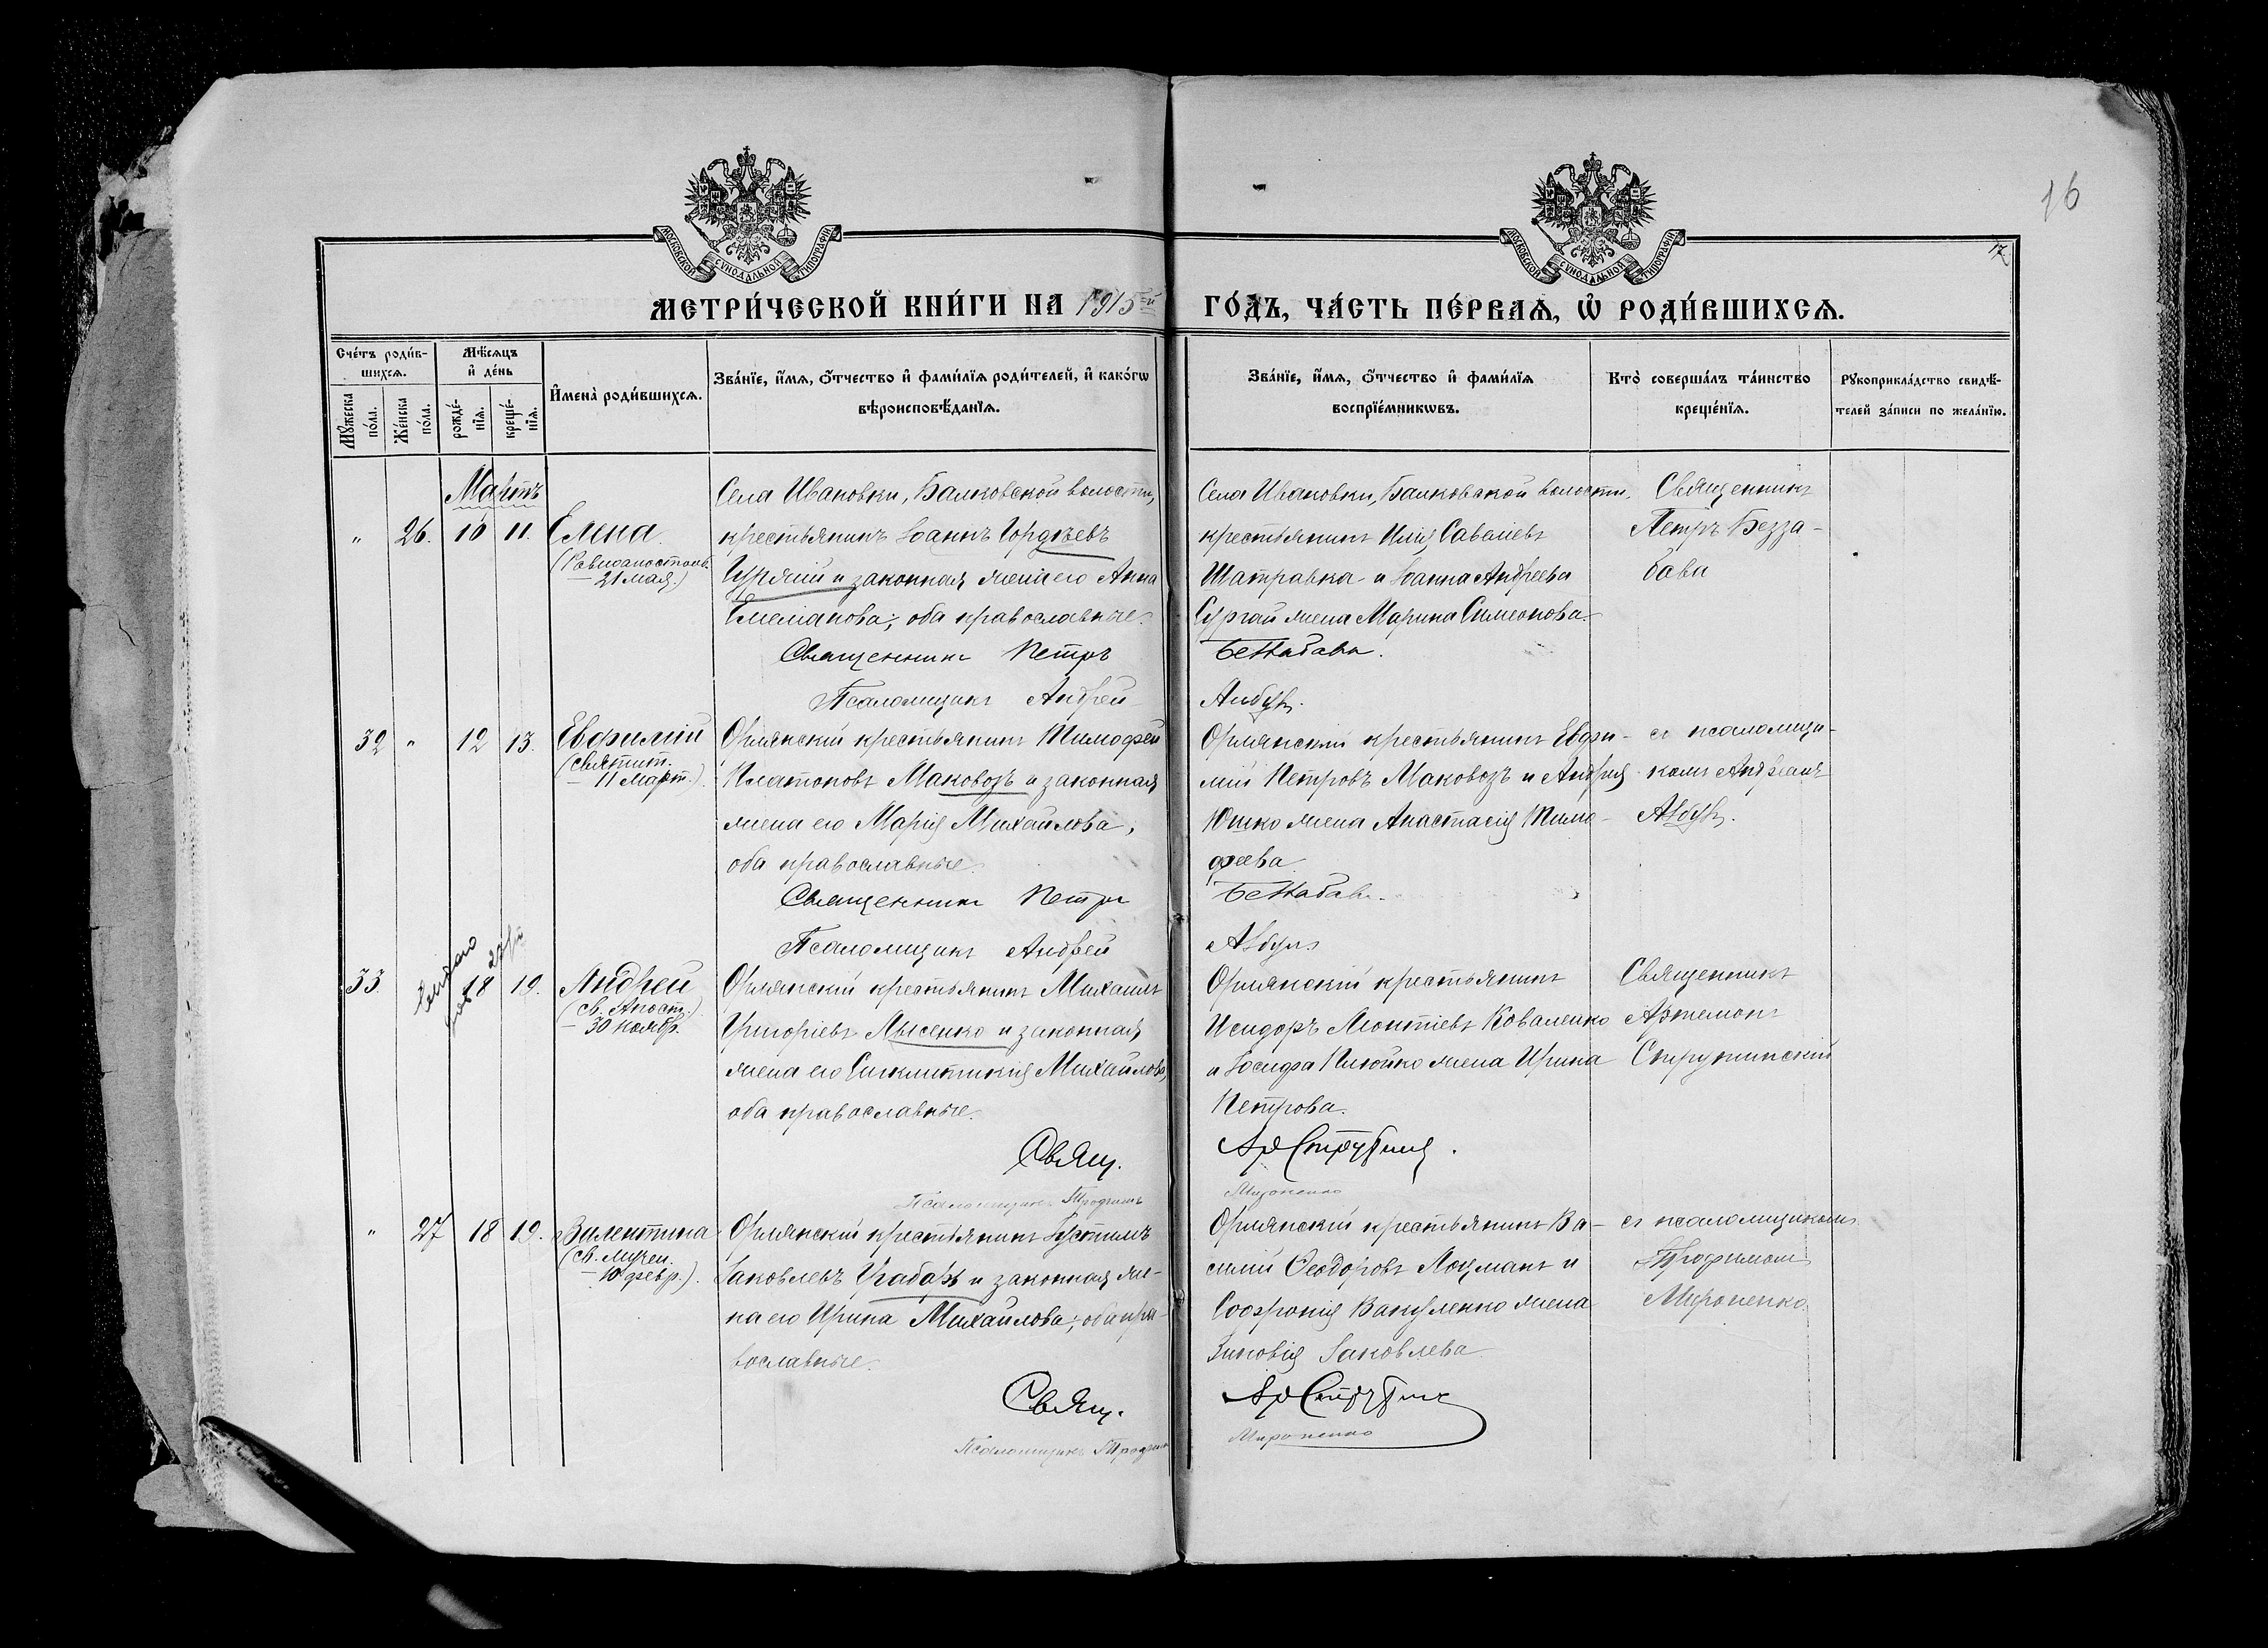 16
17
МОСКОВСКОЙ СУНОДАЛЬНОЙ ТИПОГРАФІИ
МОСКОВСКОЙ СУНОДАЛЬНОЙ ТИПОГРАФІИ
МЕТРИ́ЧЕСКОЙ КНИ́ГИ НА 1915-й ГО́ДЪ, ЧА́СТЬ ПЕ́РВАѦ, Ѡ҆ РОДИ́ВШИХСѦ.
Сче́тъ роди́в-
шихсѧ.
Мꙋ́жеска
по́ла.
Же́нска
по́ла.
Мѣ́сѧцъ
и҆ де́нь
рожде́-
нїѧ.
креще́-
нїѧ.
И҆мена̀ роди́вшихсѧ.
Зва́нїе, и҆́мѧ, ѻ҆́тчество и҆ фами́лїѧ роди́телей, и҆ како́гѡ
вѣроисповѣ́данїѧ.
Зва́нїе, и҆́мѧ, ѻ҆́тчество и҆ фами́лїѧ
воспрїе́мникѡвъ.
Кто̀ соверша́лъ та́инство
креще́нїѧ.
Рꙋкоприкла́дство свидѣ́-
телей за́писи по жела́нїю.
Мартъ
" 26. 10 11. Елена
(Равноапостольн.
— 21 мая.)
Села Ивановки, Балковской волости,
крестьянинъ Іоаннъ Гордѣевъ
и законная жена его Анна
Емеліанова; оба православные.
Священникъ Петръ
Псаломщикъ Андрей
Села Ивановки, Балковской волости,
крестьянинъ Илія Савеліевъ
Шатравка и Іоанна Андреева
Сургай жена Марина Симеонова.
Беззабава.
Священникъ
Петръ Безза-
бава
32 " 12 13. Евфимій
(Святит.
— 11 Март.)
Орлянскій крестьянинъ Тимофей
Платоновъ Маковозъ и законная
жена его Марія Михайлова,
оба православные.
Священникъ Петръ
Псаломщикъ Андрей
Орлянскій крестьянинъ Евфи-
мій Петровъ Маковозъ и Андрея
Юшко жена Анастасія Тимо-
феева
Беззабава.
съ псаломщи-
комъ Андреемъ
33 18 19. Андрей
(св. Апост.)
— 30 ноябр.
Орлянскій крестьянинъ Михаилъ
Григоріевъ Лысенко и законная
жена его Сигклитикія Михайлова,
оба православные.
Свящ.
Псаломщикъ Трофимъ
Орлянскій крестьянинъ
Исидоръ Леонтіевъ Коваленко
и Іосифа жена Ирина
Петрова.
Мироненко
Священникъ
Артемонъ
" 27 18 19. Валентина
(св. мучен.
— 10 февр.).
Орлянскій крестьянинъ Іустинъ
Іаковлевъ и законная же-
на его Ирина Михайлова; оба пра-
вославные.
Свящ.
Псаломщикъ Трофимъ
Орлянскій крестьянинъ Ва-
силій Ѳеодоровъ Лоцманъ и
Софронія Вакуленко жена
Зиновія Іаковлева
Мироненко
съ псаломщикомъ
Трофимомъ
Мироненко